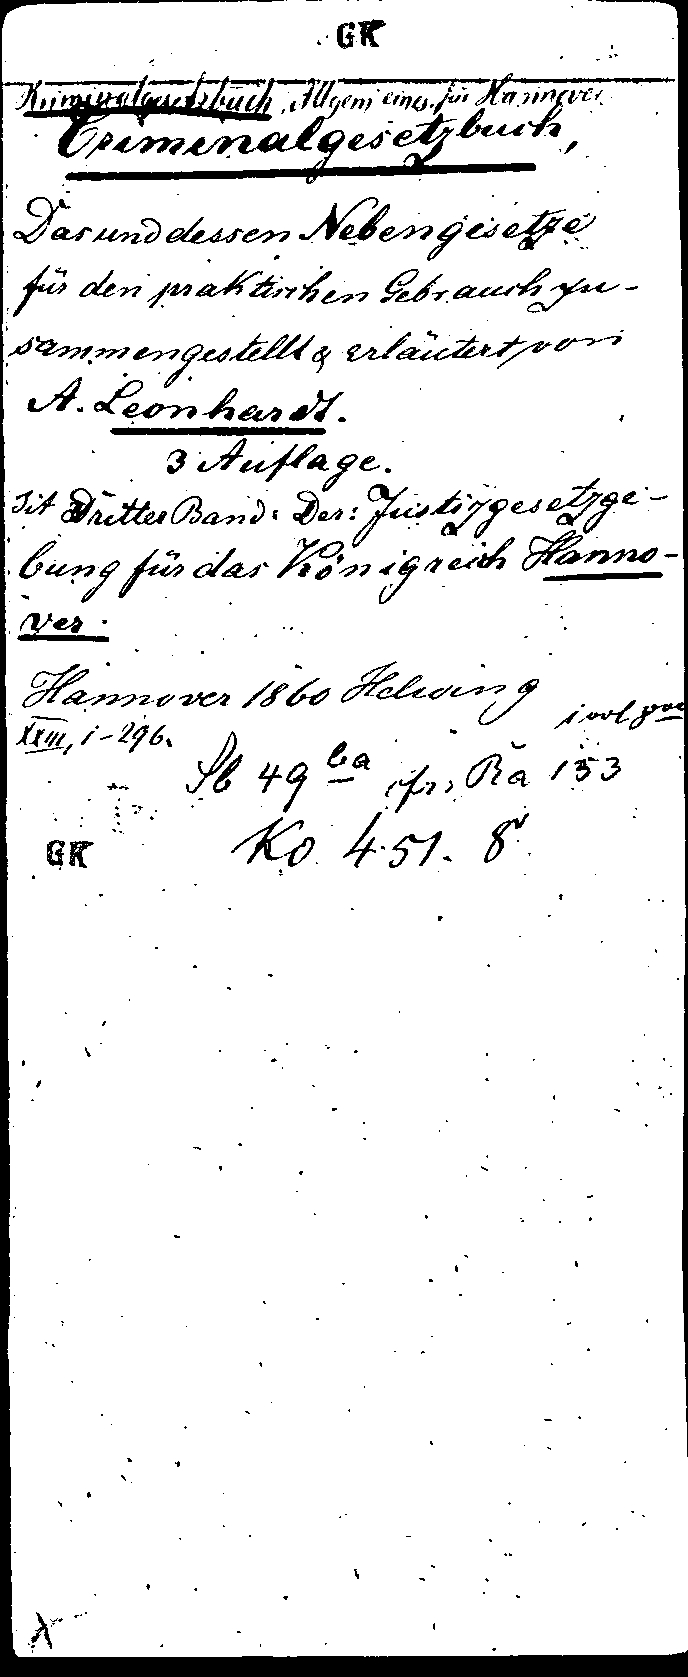 GK
Kriminalgesetzbuch, Allgemeines für Hannover
Criminalgesetzbuch,
Das und dessen Nebengesetze
für den praktischen Gebrauch zu-
sammengestellt & erläutert von
A. Leonhardt.
3 Auflage.
Sit Dritter Band: Der: Justizgesetzge-
bung für das Königreich Hanno-
ver.
Hannover 1860 Helwing
1 vol
XXIII, 1-296.
Sb 49 ba cfr, Ra 153
GK Ko 451. 8°